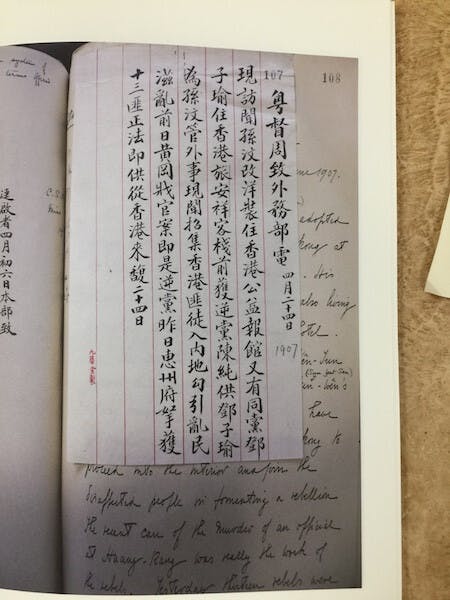 107
108
粵督周致外務部電 四月二十四日
1907
現訪聞孫汶改洋裝住香港公益報館又有同黨鄧
子瑜住香港旅安祥客棧前獲逆黨陳純供鄧子瑜
為孫汶管外事現聞招集香港匪徒入內地勾引亂民
滋亂前日黃岡戕官案即是逆黨昨日惠州府拏獲
十三匪正法即供從香港來馥二十四日
1907.
adopted
kong at
His
also living
hotel.
(Sun Yat Sen)
have
kong to
proceed into the interior and join the
disaffected people in fomenting a rebellion
The recent case of the murder of an official
at Huang-Kang was really the work of
the rebels. Yesterday thirteen rebels were
逕啟者四月初六日本部致